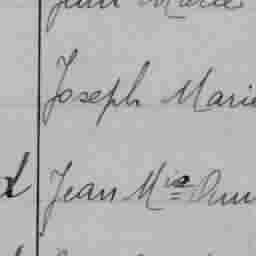 Jean Marie
Joseph Marie
Jean Mie